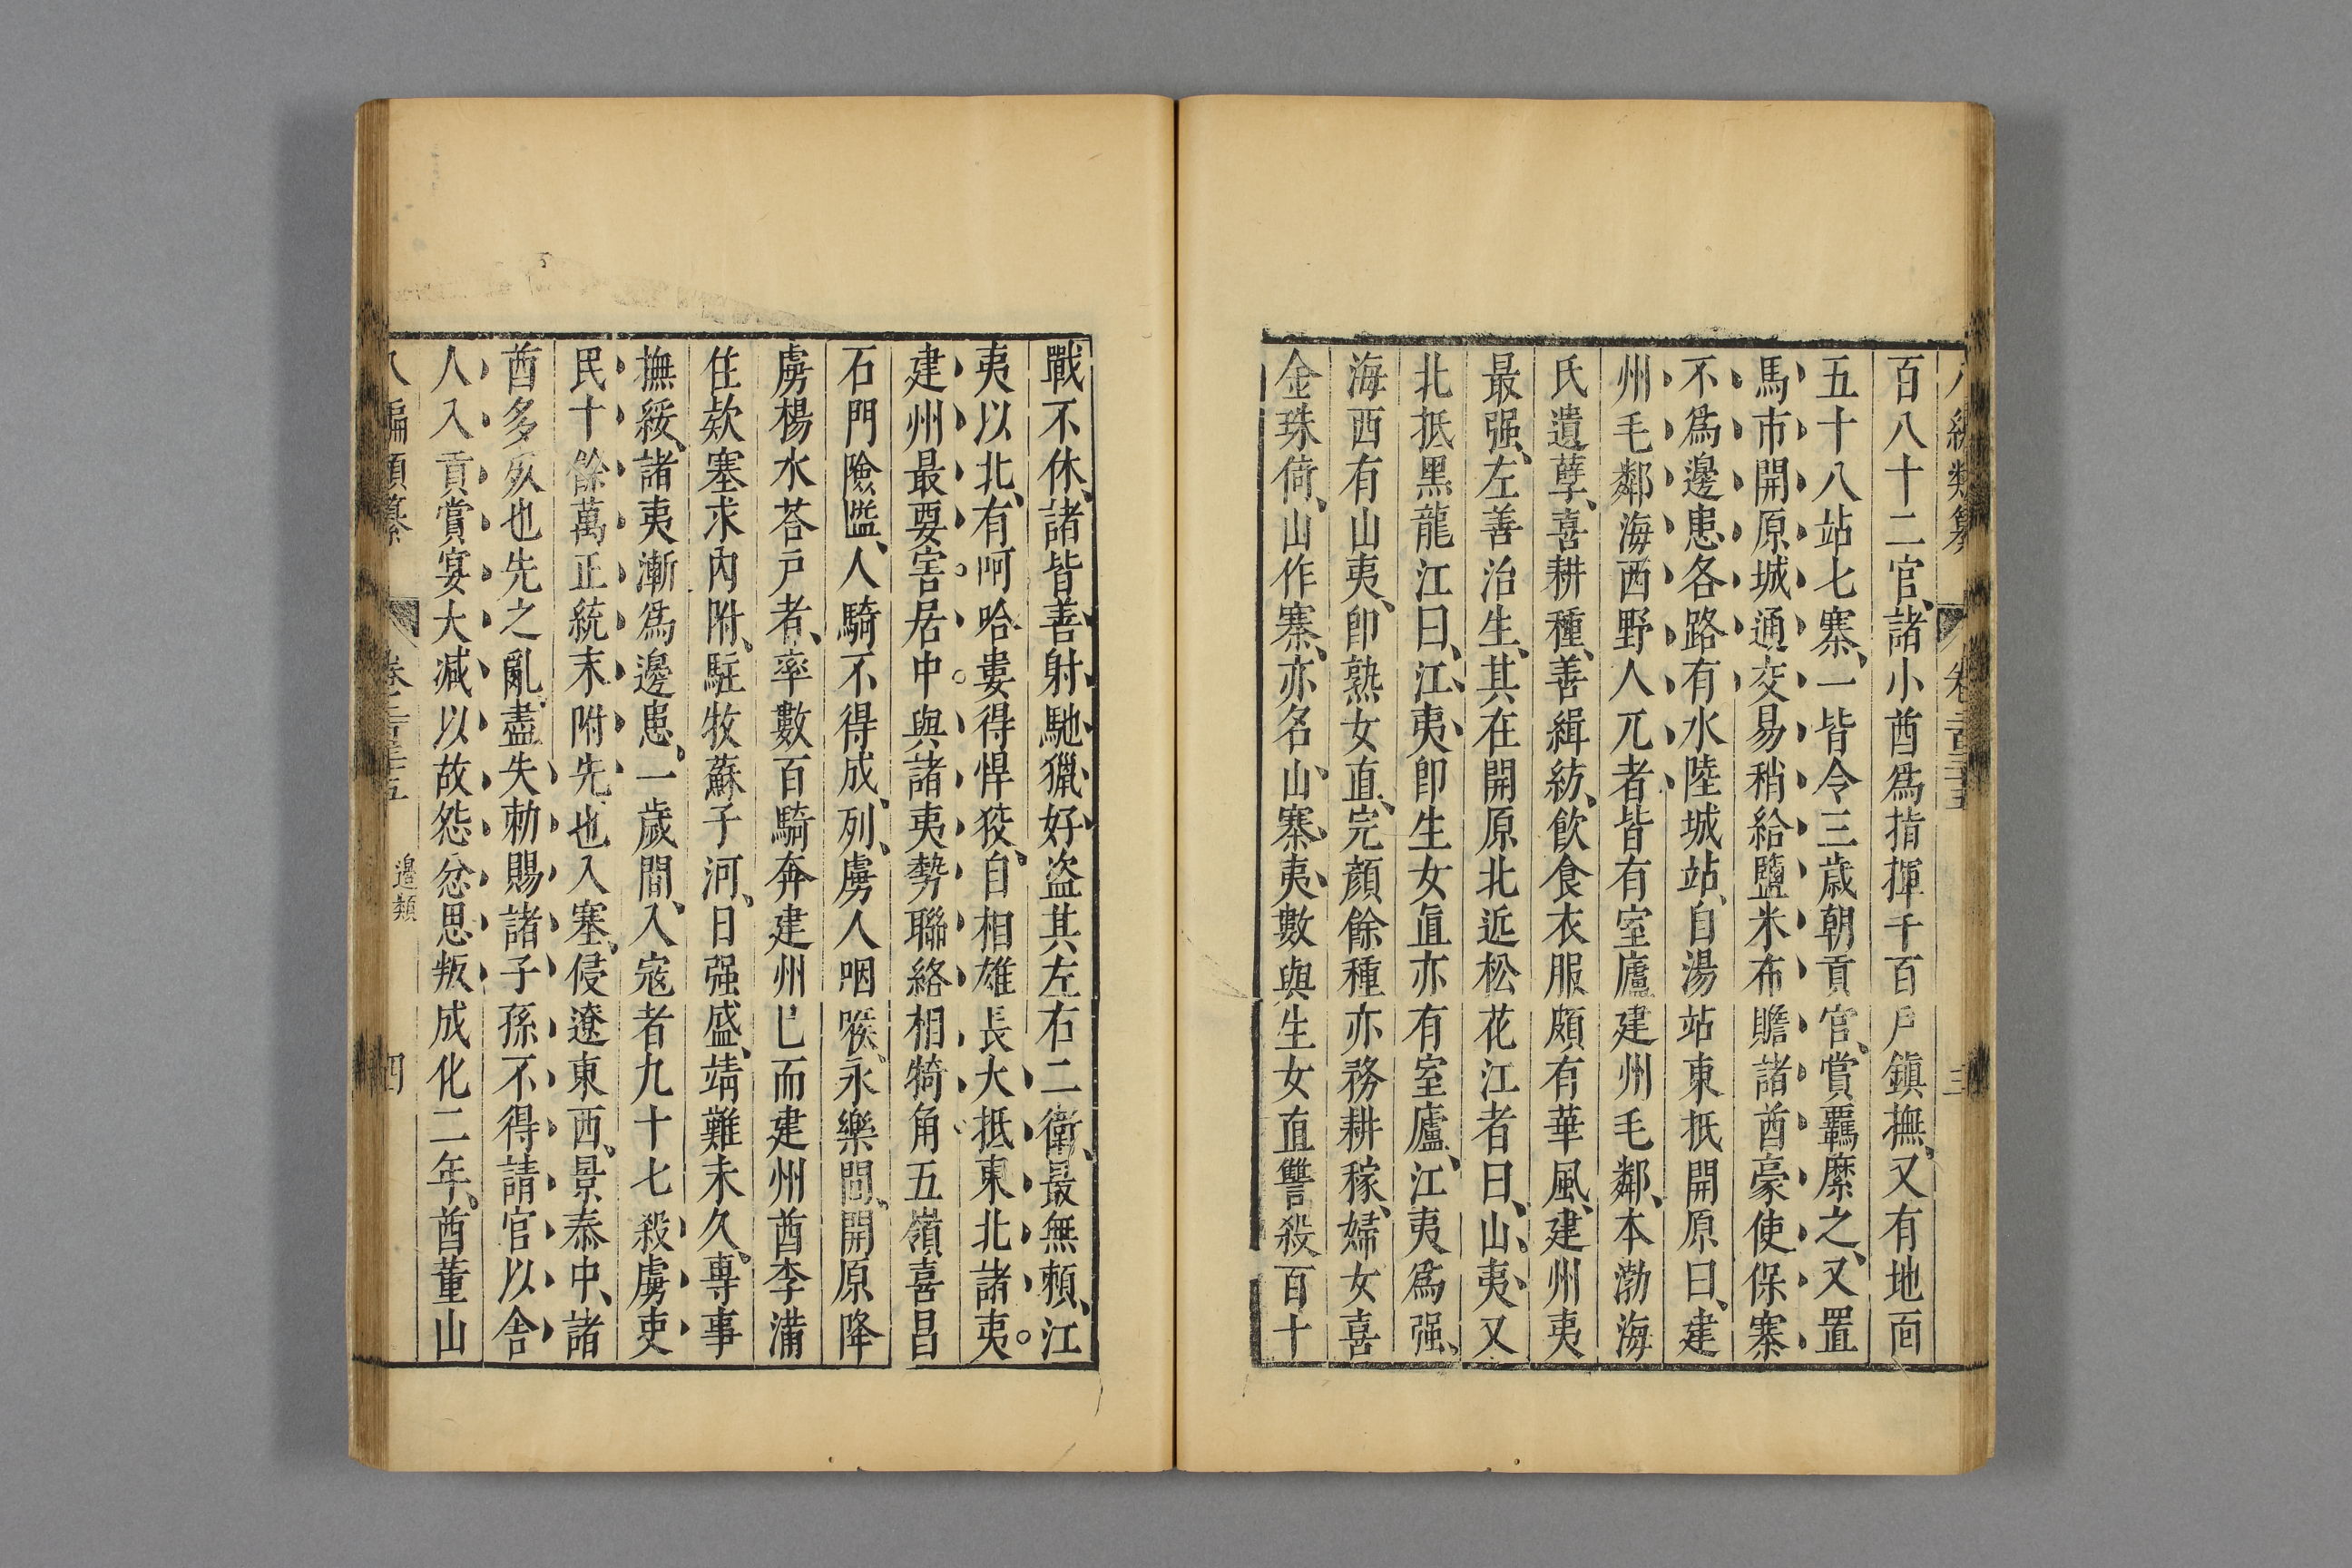 八編類纂 卷二百三十五 三
百八十二官諸小酋為指揮千百戶鎮撫又有地面
五十八站七寨一皆令三歲朝貢官賞羈縻之又置
馬市開原城通交易稍給鹽米布贍諸酋豪使保寨
不為邊患各路有水陸城站自湯站東抵開原曰建
州毛鄰海西野人兀者皆有室廬建州毛鄰本渤海
氏遺孽喜耕種善緝紡飲食衣服頗有華風建州夷
最强左善治生其在開原北近松花江者曰山夷又
北抵黑龍江曰江夷卽生女直亦有室廬江夷為强
海西有山夷卽熟女直完顏餘種亦務耕稼婦女喜
金珠倚山作寨亦名山寨夷數與生女直讐殺百十
戰不休諸皆善射馳獵好盜其左右二衛最無賴江
夷以北有呵哈婁得悍狡自相雄長大抵東北諸夷
建州最要害居中與諸夷勢聯絡相犄角五嶺喜昌
石門險隘人騎不得成列虜人咽喉永樂間開原降
虜楊水荅戶者率數百騎奔建州已而建州酋李滿
住欵塞求內附駐牧蘇子河日强盛靖難未久專事
撫綏諸夷漸為邊患一歲間入寇者九十七殺虜吏
民十餘萬正統末附先也入塞侵遼東西景泰中諸
酋多死也先之亂盡失勅賜諸子孫不得請官以舍
人入貢賞宴大减以故怨忿思叛成化二年酋董山
八編類纂 卷二百三十五 邊類 四